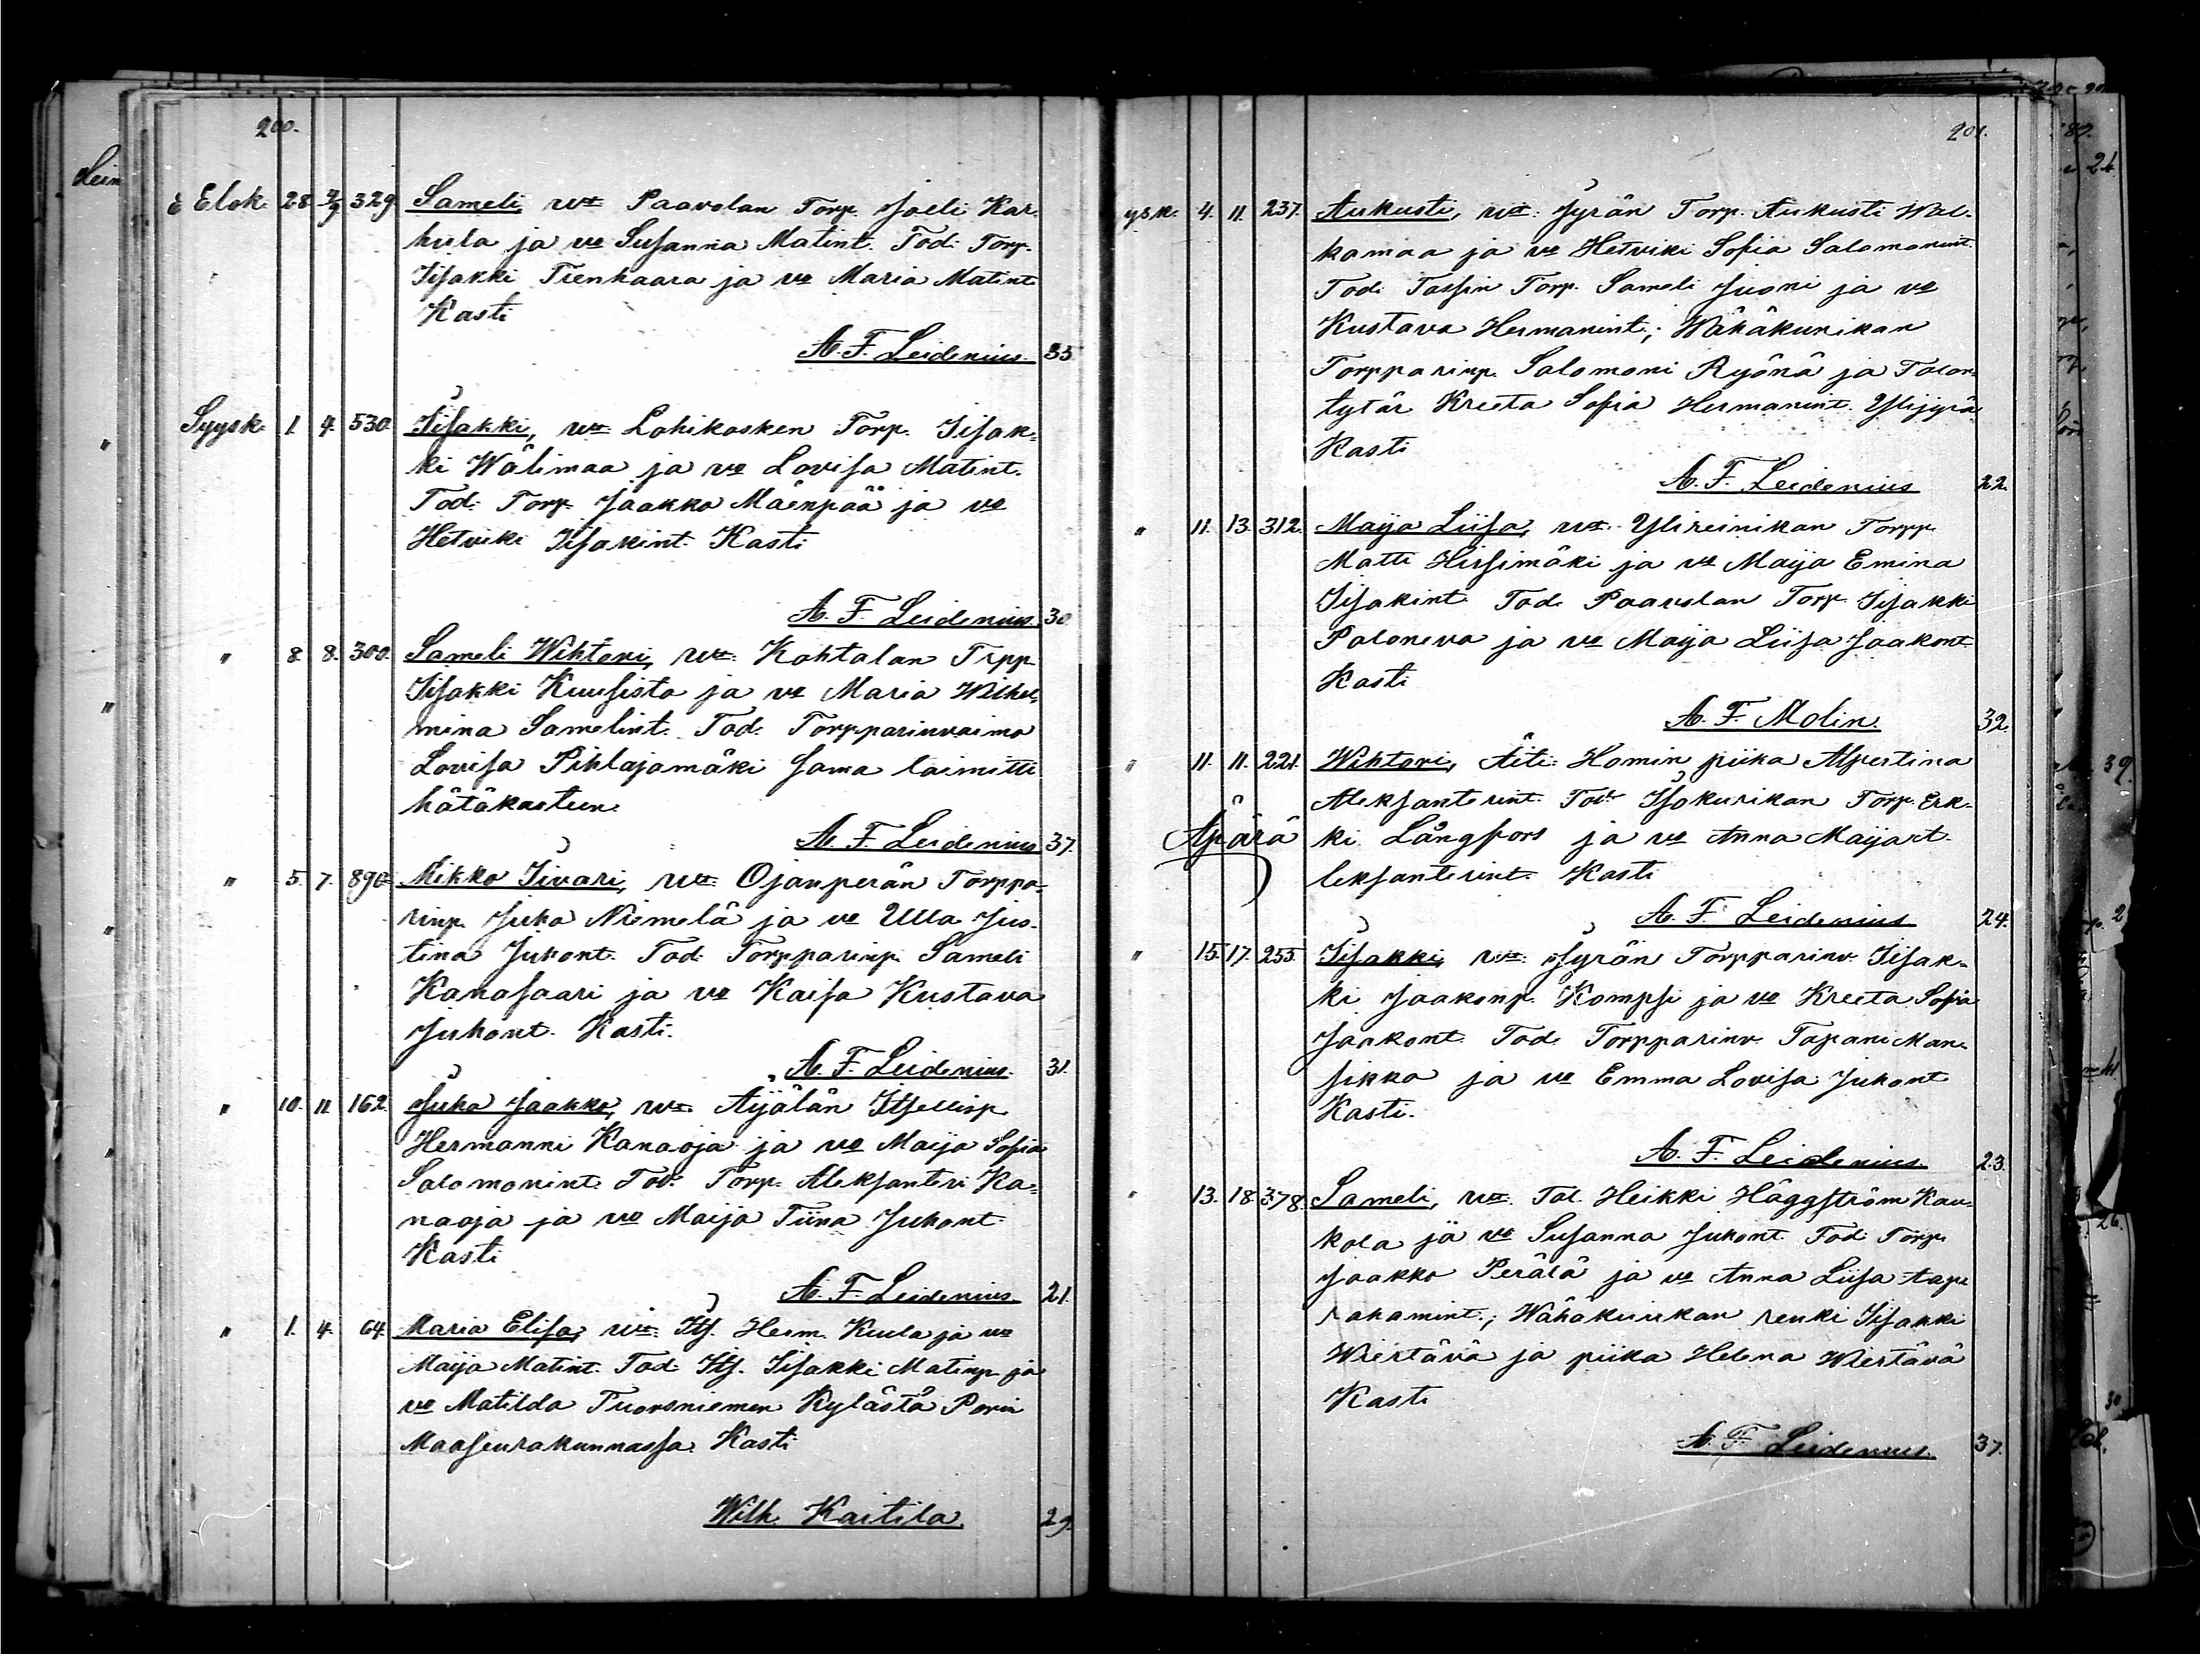 200.
Elok. 28 2/9 329 Sameli, vat Paavolan Torp. Joeli Kar-
hula ja vo Susanna Matint. Tod: Torp.
Iisakki Tienhaara ja vo Maria Matint
Kasti
A. F. Leidenius. 35
Syysk. 1. 4. 530. Iisakki, vat Lohikosken Torp. Iisak-
ki Wälimaa ja vo Lovisa Matint.
Tod: Torp. Jaakko Mäenpää ja vo
Hetviki Iisakint. Kasti
A. F. Leidenius. 30
" 8. 8. 300. Sameli Wihtori, vat. Kohtalan Trpp.
Iisakki Kuusisto ja vo Maria Wilhel-
mina Samelint. Tod: Torpparinvaimo
Lovisa Pihlajamäki sama toimitti
hätäkasteen.
A. F. Leidenius 37.
" 5. 7. 890. Mikko Iivari, vat. Ojanperän Torppa-
rinp. Juha Niemelä ja vo Ulla Jus-
tina Juhont. Tod: Torpparinp. Sameli
Kanasaari ja vo Kaisa Kustava
Juhont. Kasti.
A. F. Leidenius. 31.
" 10. 11. 162. Juho Jaakko, vat. Äijälän Itsellisp.
Hermanni Kanaoja ja vo Maija Sofia
Salomonint. Tod: Torp. Aleksanteri Ka-
naoja ja vo Maija Tiina Juhont.
Kasti
A. F. Leidenius 21.
" 1. 4. 64. Maria Elisa, vat. Its. Herm. Kuula ja vo
Maija Matint. Tod: Its. Iisakki Matinp. ja
vo Matilda Tuorsniemen Kylästä Porin
Maaseurakunnassa. Kasti
Wilh. Kaitila. 29.
201.
ysk. 4. 11. 237. Aukusti, vat. Jyrän Torp. Aukusti Wal-
kamaa ja vo Hetviki Sofia Salomonint.
Tod: Tassin Torp. Sameli Juoni ja vo
Kustava Hermanint.; Wähäkurikan
Torpparinp. Salomoni Ryönä ja Talon-
tytär Kreeta Sofia Hermanint. Ylijyrä
Kasti
A. F. Leidenius 22.
" 11. 13. 312. Maija Liisa, vat. Ylireinikan Torpp.
Matti Hirsimäki ja vo Maija Emina
Iisakint. Tod: Paavolan Torp. Iisakki
Paloneva ja vo Maija Liisa Jaakont.
Kasti
A. F. Molin. 32.
" 11. 11. 221. Wihtori, Äiti: Homin piika Alpertina
Aleksanterint. Tod: Isokurikan Torp. Erk-
Äpärä ki Långfors ja vo Anna Maija A-
leksanterint. Kasti
A. F. Leidenius 24.
" 15. 17. 255. Iisakki, vat. Jyrän Torpparinv. Iisak-
ki Jaakonp. Kompsi ja vo Kreeta Sofia
Jaakont. Tod: Torpparinv. Tapani Man-
sikka ja vo Emma Lovisa Juhont
Kasti.
A. F. Leidenius 23.
" 13. 18. 378. Sameli, vat. Tal. Heikki Häggström Kau-
kola ja vo Susanna Juhont. Tod: Torp.
Jaakko Perälä ja vo Anna Liisa Aap-
rahamint.; Wähäkurikan renki Iisakki
Wiertävä ja piika Helena Wiertävä
Kasti
A. F. Leidenius. 37.